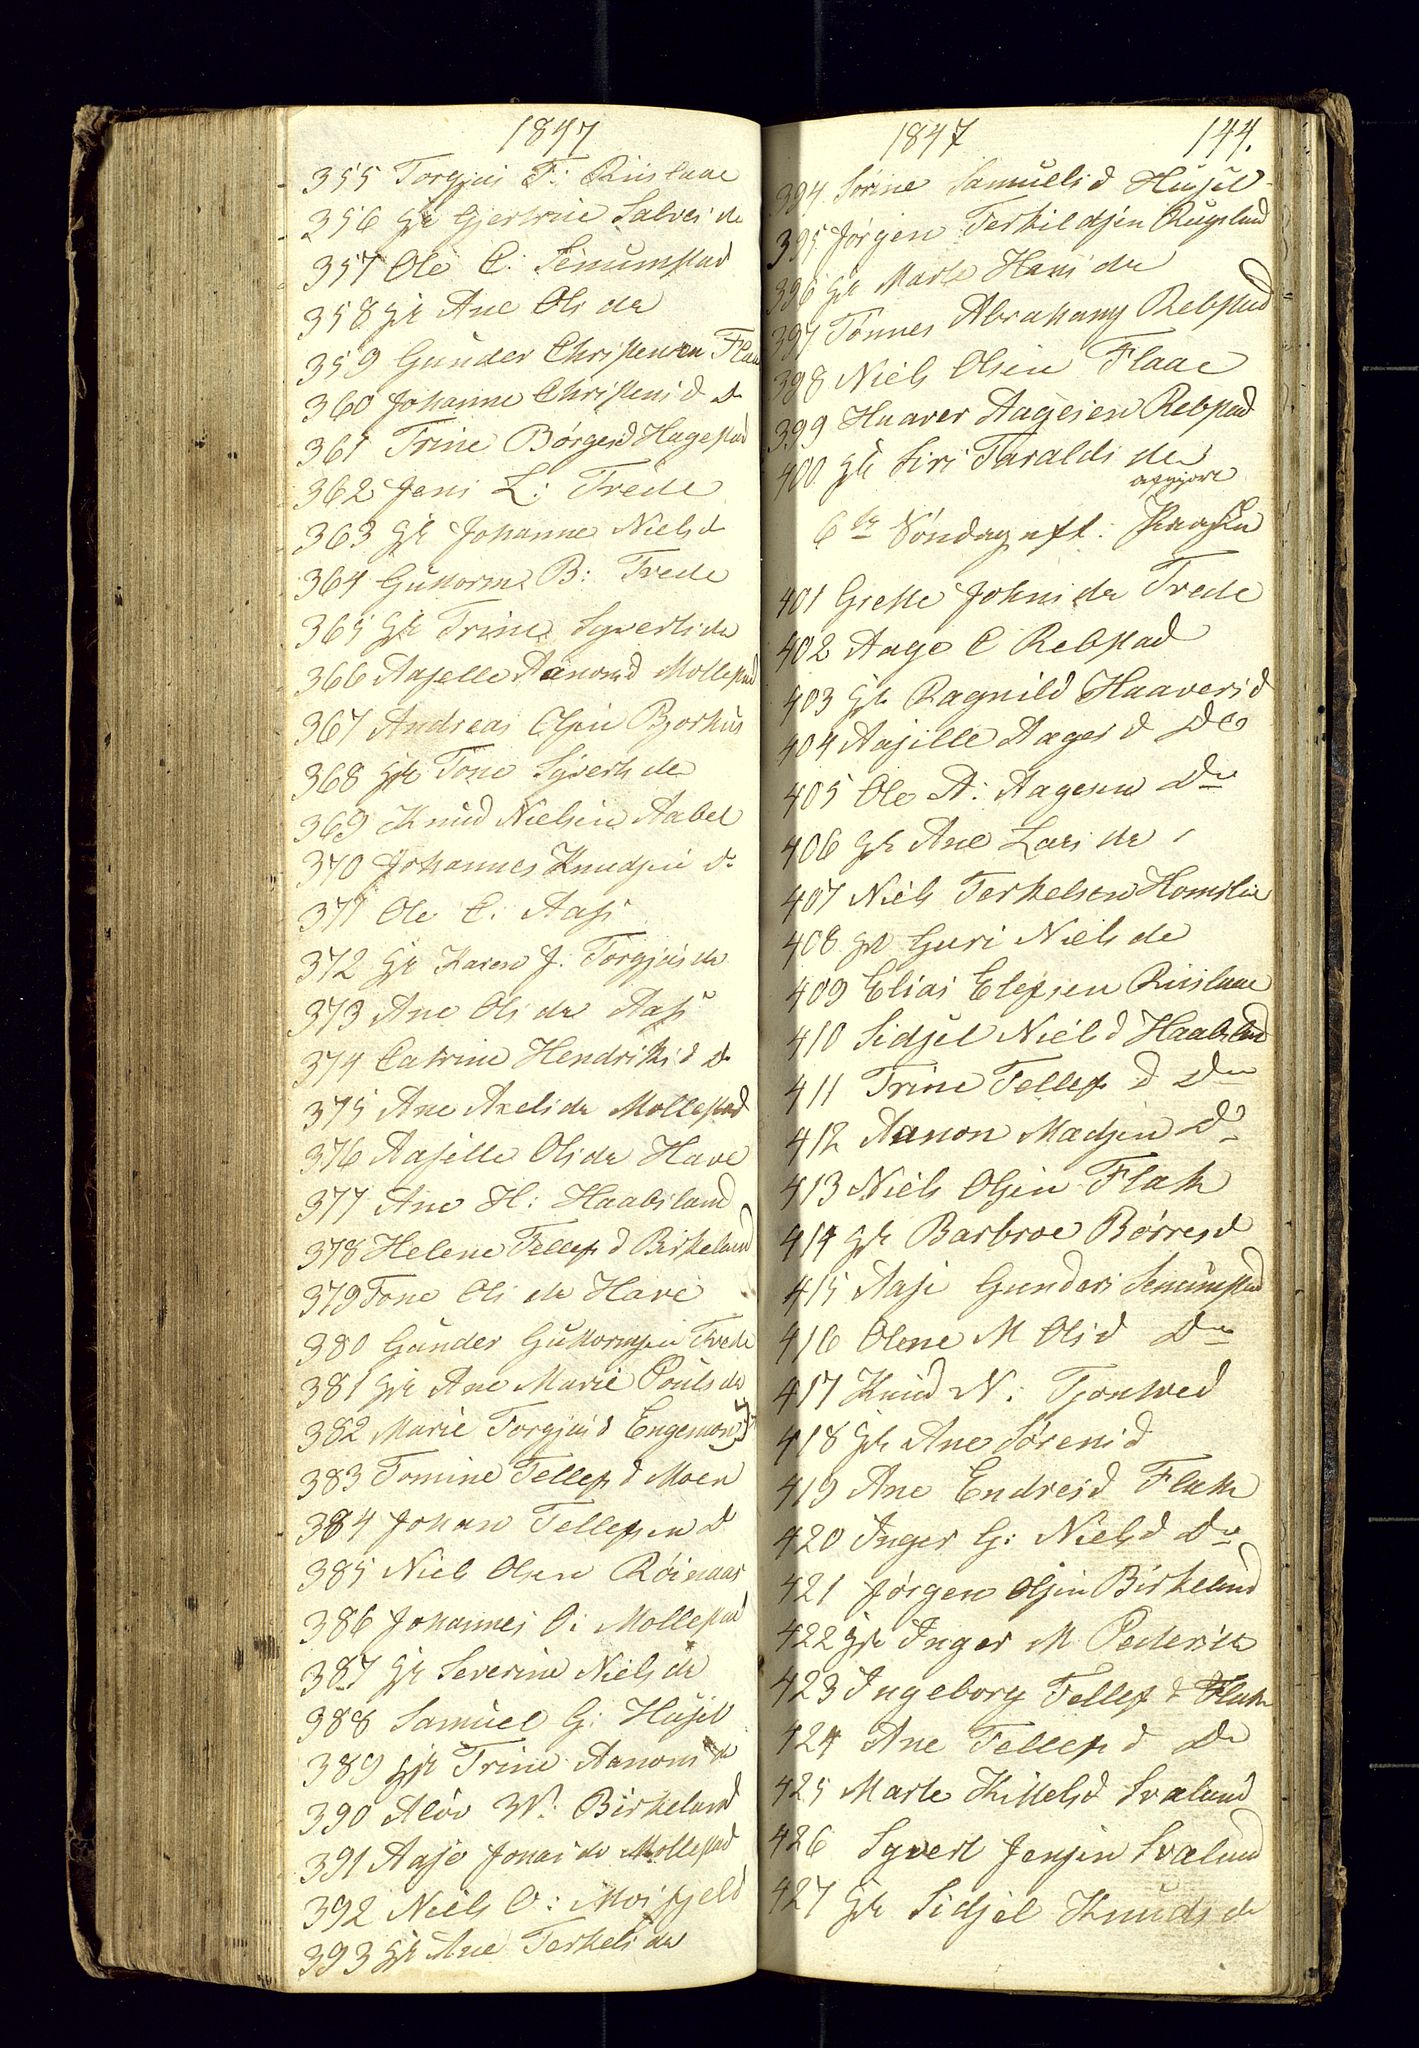 1847
355 Torgjus T: Riislaae
356 Gk Gjertrine Salves da
357 Ole C: Senumstad
358 Gk Ane Ols da
359 Gunder Christensen Flaae
360 Johanne Christens d Do
361 Trine Børges d Hagestad
362 Jens L: Trede
363 Gk Johanne Niels d
364 Guttorm B: Trede
365 Gk Trine Syverts da
366 Aasille Aanons d Mollestad
367 Andreas Olsen Bjorhus
368 Gk Tone Syverts da
369 Knud Nielsen Aabel
370 Johannes Knudsen Do
371 Ole C: Aass
372 Gk Karen J. Torgjus da
373 Ane Ols da Aass
374 Catrine Hendriks d Do
375 Ane Axels da Mollestad
376 Aasille Ols da Have
377 Ane H: Haabsland
378 Helene Tellefs d Birkeland
379 Tone Ols da Have
380 Gunder Guttormsen Trede
381 Gk Ane Marie Pouls da
382 Marie Torgjus d Engemoen
383 Tomine Tellefs d Moen
384 Johan Tellefsen Do
385 Niels Olsen Røinaas
386 Johannes O: Mollestad
387 Gk Severine Niels da
388 Samuel G: Hüsel
389 Gk Trine Aanons da
390 Alöv W: Birkeland
391 Aase Jonas da Mollestad
392 Niels O: Moisfjeld
393 Gk Ane Terkels da
1847 144.
394 Sørine Samuels d Hüsel
395 Jørgen Terkildsen Rugsland
396 Gk Marte Hans da
397 Tønnes Abrahams Rebstad
398 Niels Olsen Flaae
399 Haaver Aagesen Rebstad
400 Gk Siri Taralds da
6te Søndag eft: Paaske
401 Grethe Johns da Trede
402 Aage C Rebstad
403 Gk Ragnild Haavers d
404 Aasille Aages d Do
405 Ole A: Aagesen Do
406 Gk Ane Lars da
407 Niels Terkelsen Homslie
408 Gk Guri Niels da
409 Elias Elefsen Riislaae
410 Sidsel Niels d Haabsland
411 Trine Tellefs d Do
412 Aanon Madsen Do
413 Niels Olsen Flak
414 Gk Barbroe Børres d
415 Aase Gunders Senumstad
416 Olene M Ols d Do
417 Knud N: Tjomsved
418 Gk Ane Sørens d
419 Ane Endres d Flak
420 Inger G: Niels d Do
421 Jørgen Olsen Birkeland
422 Gk Inger M Peders da
423 Ingeborg Tellefs d Flak
424 Ane Tellefs d Do
425 Marte Kittels d Svaland
426 Syvert Jensen Svaland
427 Gk Sidsel Knuds da